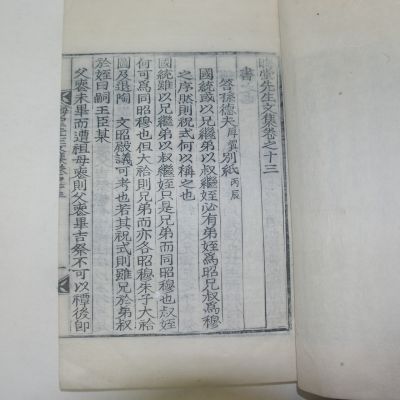 先生文集卷之十三
書
答孫德夫厚翼別紙 丙辰
國統或以兄繼弟以叔繼姪必有弟姪爲昭兄叔爲穆
之序然則祝式何以稱之也
國統雖以兄繼弟以叔繼姪只是兄弟而同昭穆也叔姪
何可爲同昭穆也但大祫則兄弟而亦各昭穆朱子大祫
圖及退陶 文昭殿議可考也若其祝式則雖兄於弟叔
於姪曰嗣王臣某
父喪未畢而遭祖母喪則父喪畢吉祭不可以禫後卽